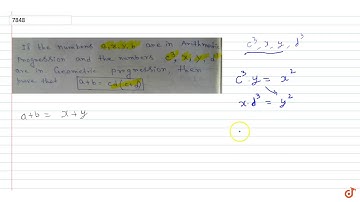 7848
If the numbers a, x, y, b are in Arithmetic
Progression and the numbers c³, x, y, d³
are in Geometric progression, then
prove that a+b = cd(c+d)
a+b = x+y
c³, x, y, d³
c³y = x²
x·d³ = y²